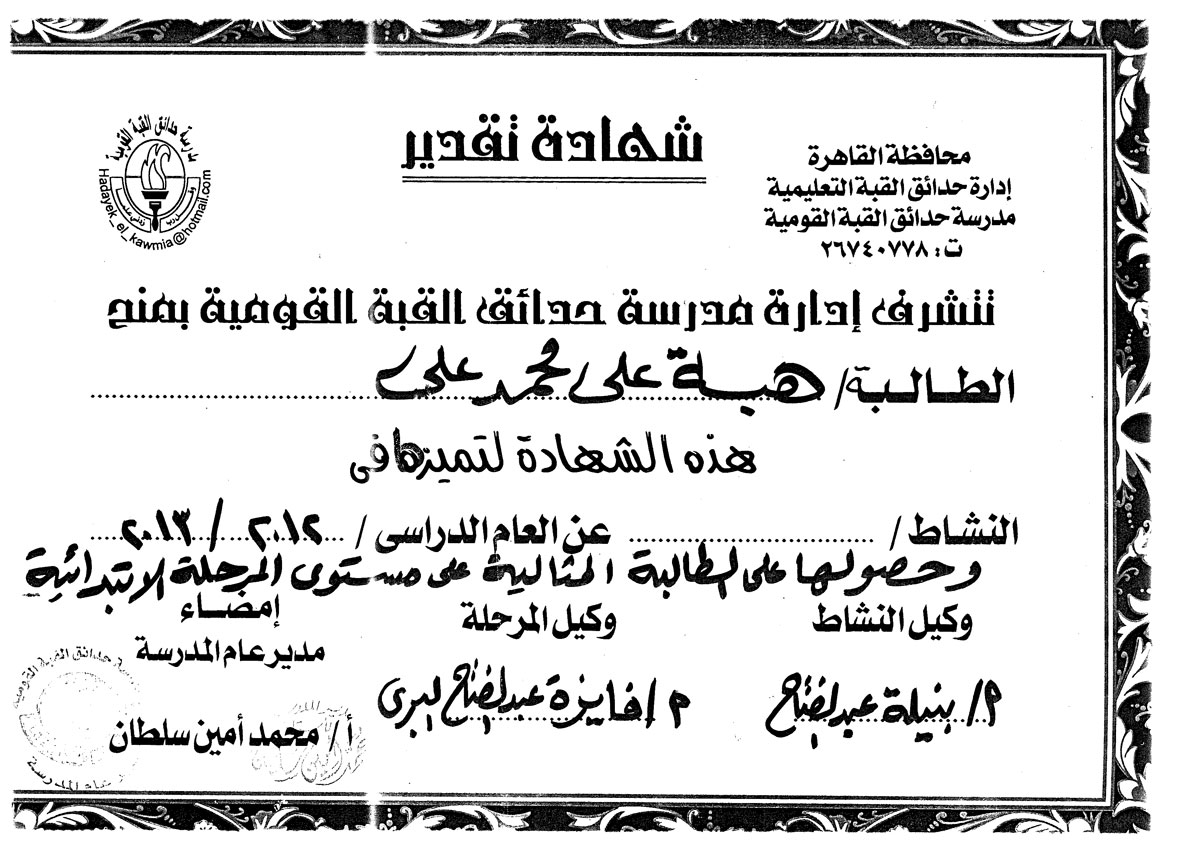 شهادة تقدير
محافظة القاهرة
إدارة حدائق القبة التعليمية
مدرسة حدائق القبة القومية
ت : ٢٦٧٤٠٧٧٨
مدرسة حدائق القبة القومية
وقل رب زدنى علما
Hadayek_el_kawmia@hotmail.com
تتشرف إدارة مدرسة حدائق القبة القومية بمنح
الطالبة / هبة على محمد على
هذه الشهادة لتميزها فى
النشاط / عن العام الدراسى / ٢٠١٢ / ٢٠١٣
وحصولها على الطالبة المثالية على مستوى المرحلة الابتدائية
وكيل النشاط وكيل المرحلة إمضاء
مدير عام المدرسة
م/ نبيلة عبدالفتاح م/ فايزة عبدالفتاح البرى
أ / محمد أمين سلطان
حدائق القبة القومية